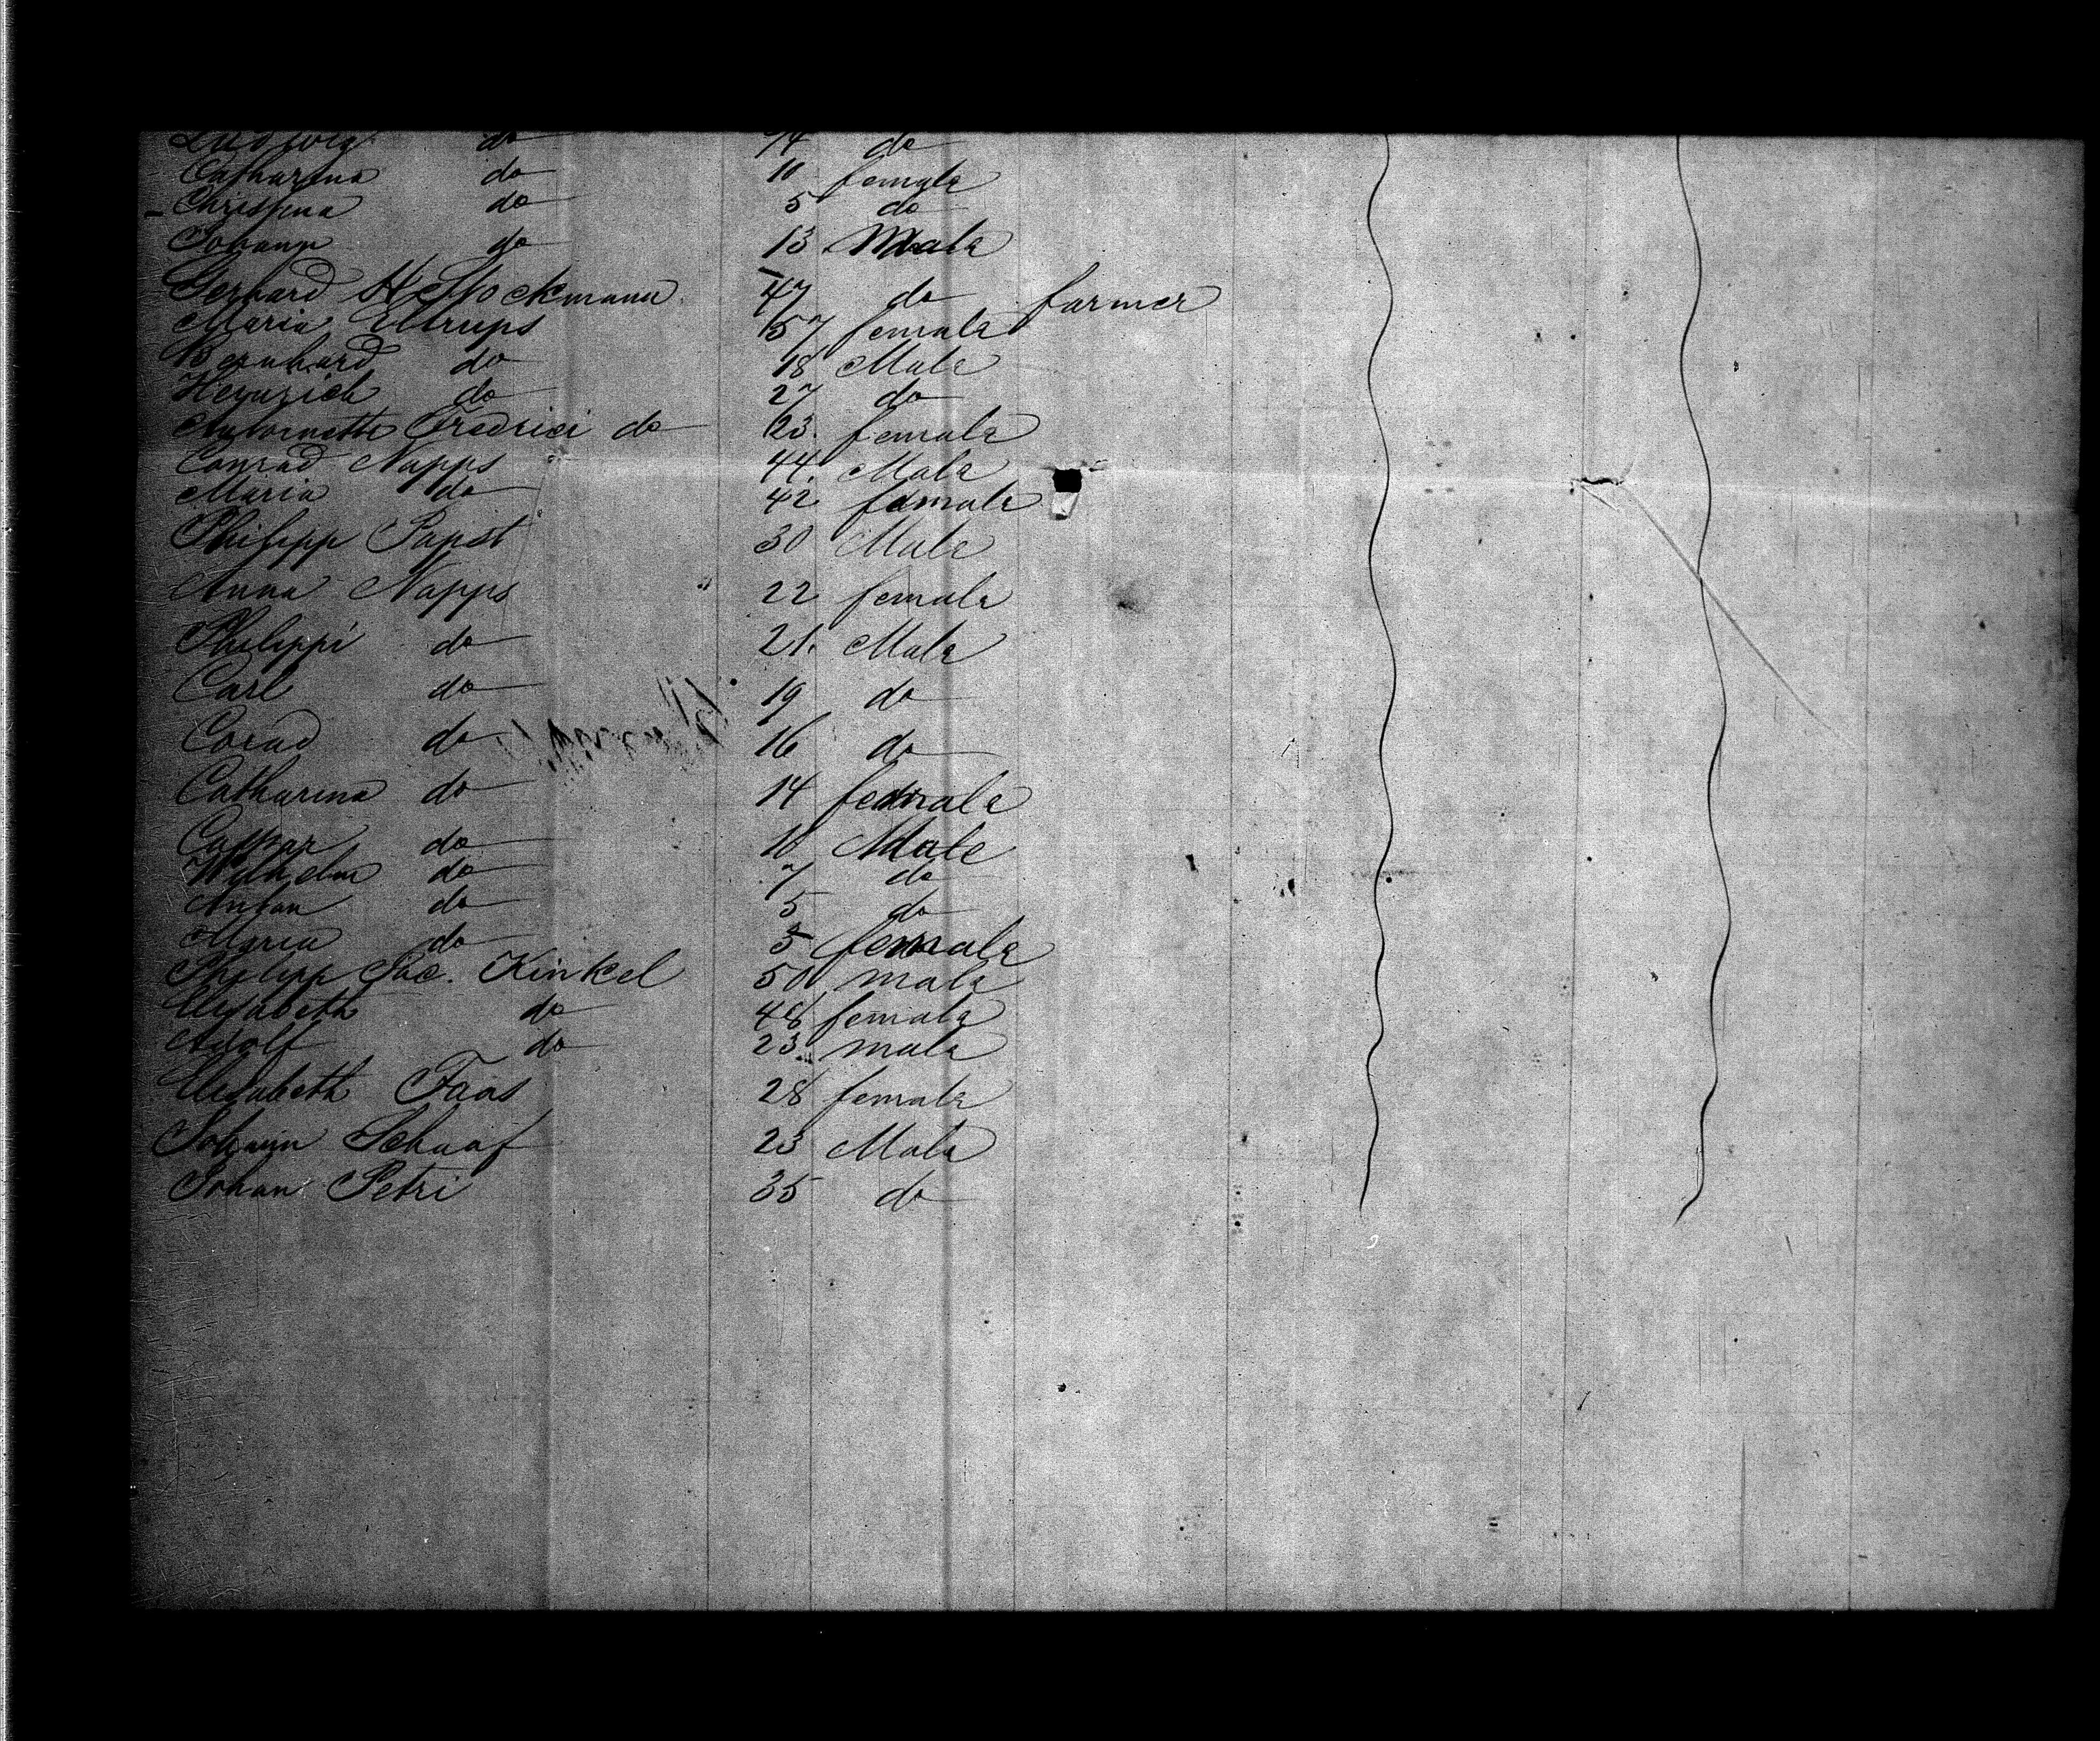 Ludwig do 14 do
Catharina do 10 female
Christina do 5 do
Johann do 13 Male
Gerhard 47 do farmer
Maria 57 female
Bernhard do 18 Male
Heinrich do 27 do
Antoinette Fredrici do 23. female
Conrad Napps 44. Male
Maria do 42 female
Philipp Papst 30 Male
Anna Napps " 22 female
Philippi do 21. Male
Carl do 19 do
Corad do 16 do
Catharina do 14 female
Caspar do 10 Male
Wilhelm do 7 do
Anton do 5 do
Maria do 5 female
Philipp Jac. Kinkel 50 male
Elisabeth do 48 female
Adolf do 23 male
Elisabeth Faas 28 female
Johann Schaaf 23 Male
Johan Petri 35 do